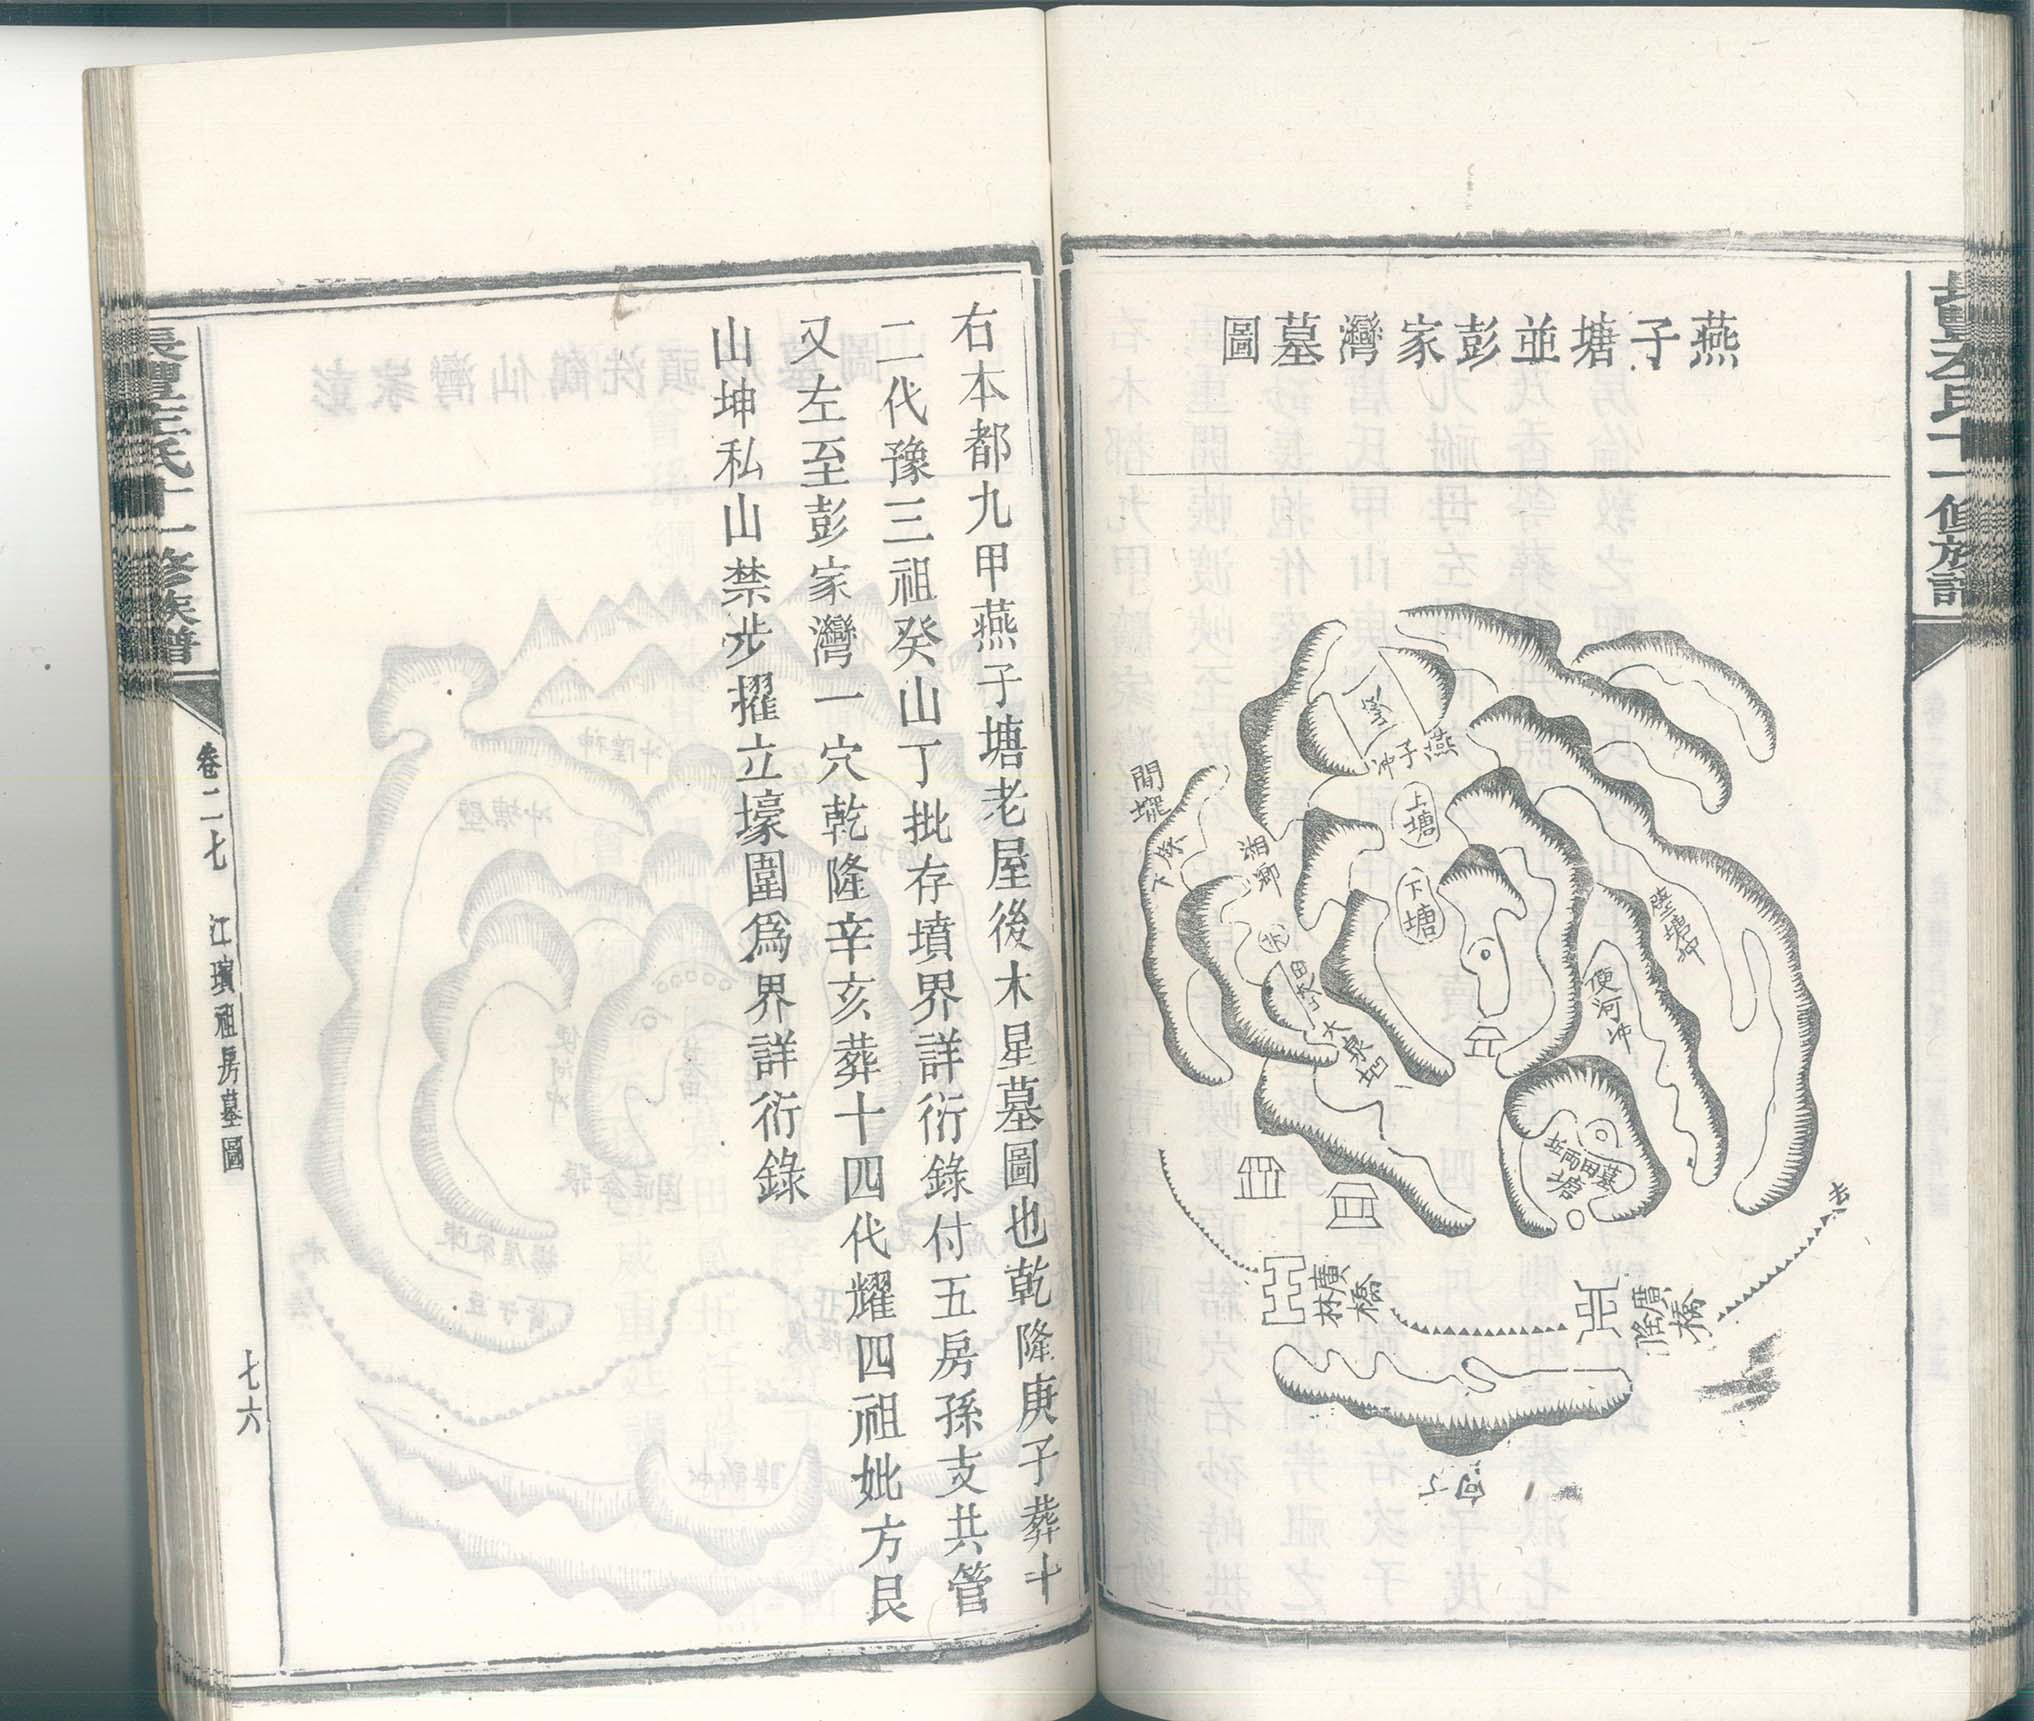 燕子塘並彭家灣墓圖
燕子冲
上塘
下塘
湘鄉
陸塘冲
便河冲
大泉地
墓田兩坵
塘
廣林橋
廣隆橋
去
右本都九甲燕子塘老屋後木星墓圖也乾隆庚子葬十
二代豫三祖癸山丁批存墳界詳衍錄付五房孫支共管
又左至彭家灣一穴乾隆辛亥葬十四代耀四祖妣方艮
山坤私山禁步擢立壕圍爲界詳衍錄
左氏十一修族譜
卷二七
江璸祖房墓圖
七六